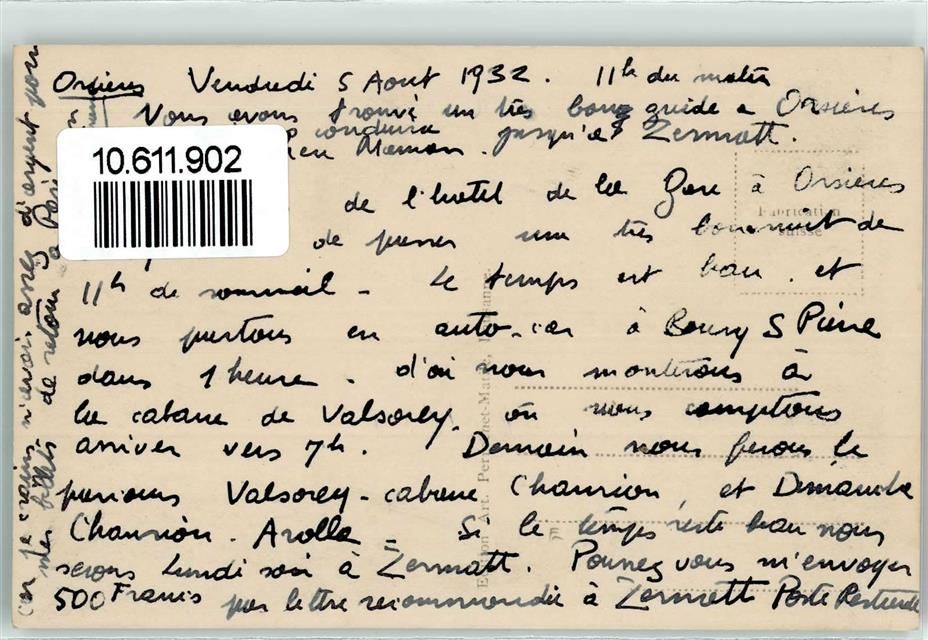 Orsières Vendredi 5 Aout 1932. 11h du matin
Nous avons trouvé un très bon guide a Orsières
conduire jusqu'à Zermatt.
Maman.
10.611.902
de l'hotel de la Gare à Orsières
Fabrication
Suisse
de passer une très bonne nuit de
11h de sommeil - Le temps est beau et
nous partons en auto-car à Bourg S Pierre
dans 1 heure. d'où nous monterons à
la cabane de Valsorey. où nous comptons
arriver vers 7h. Demain nous ferons le
parcours Valsorey - cabane Chanrion, et Dimanche
Chanrion. Arolla - Si le temps reste beau nous
serons Lundi soir à Zermatt. Pouvez vous m'envoyer
500 Francs par lettre recommandée à Zermatt Poste Restante
car je crains n'avoir assez d'argent pour
mes billets de retour a Paris
Edition Art. Perrochet-Matile, Lausanne